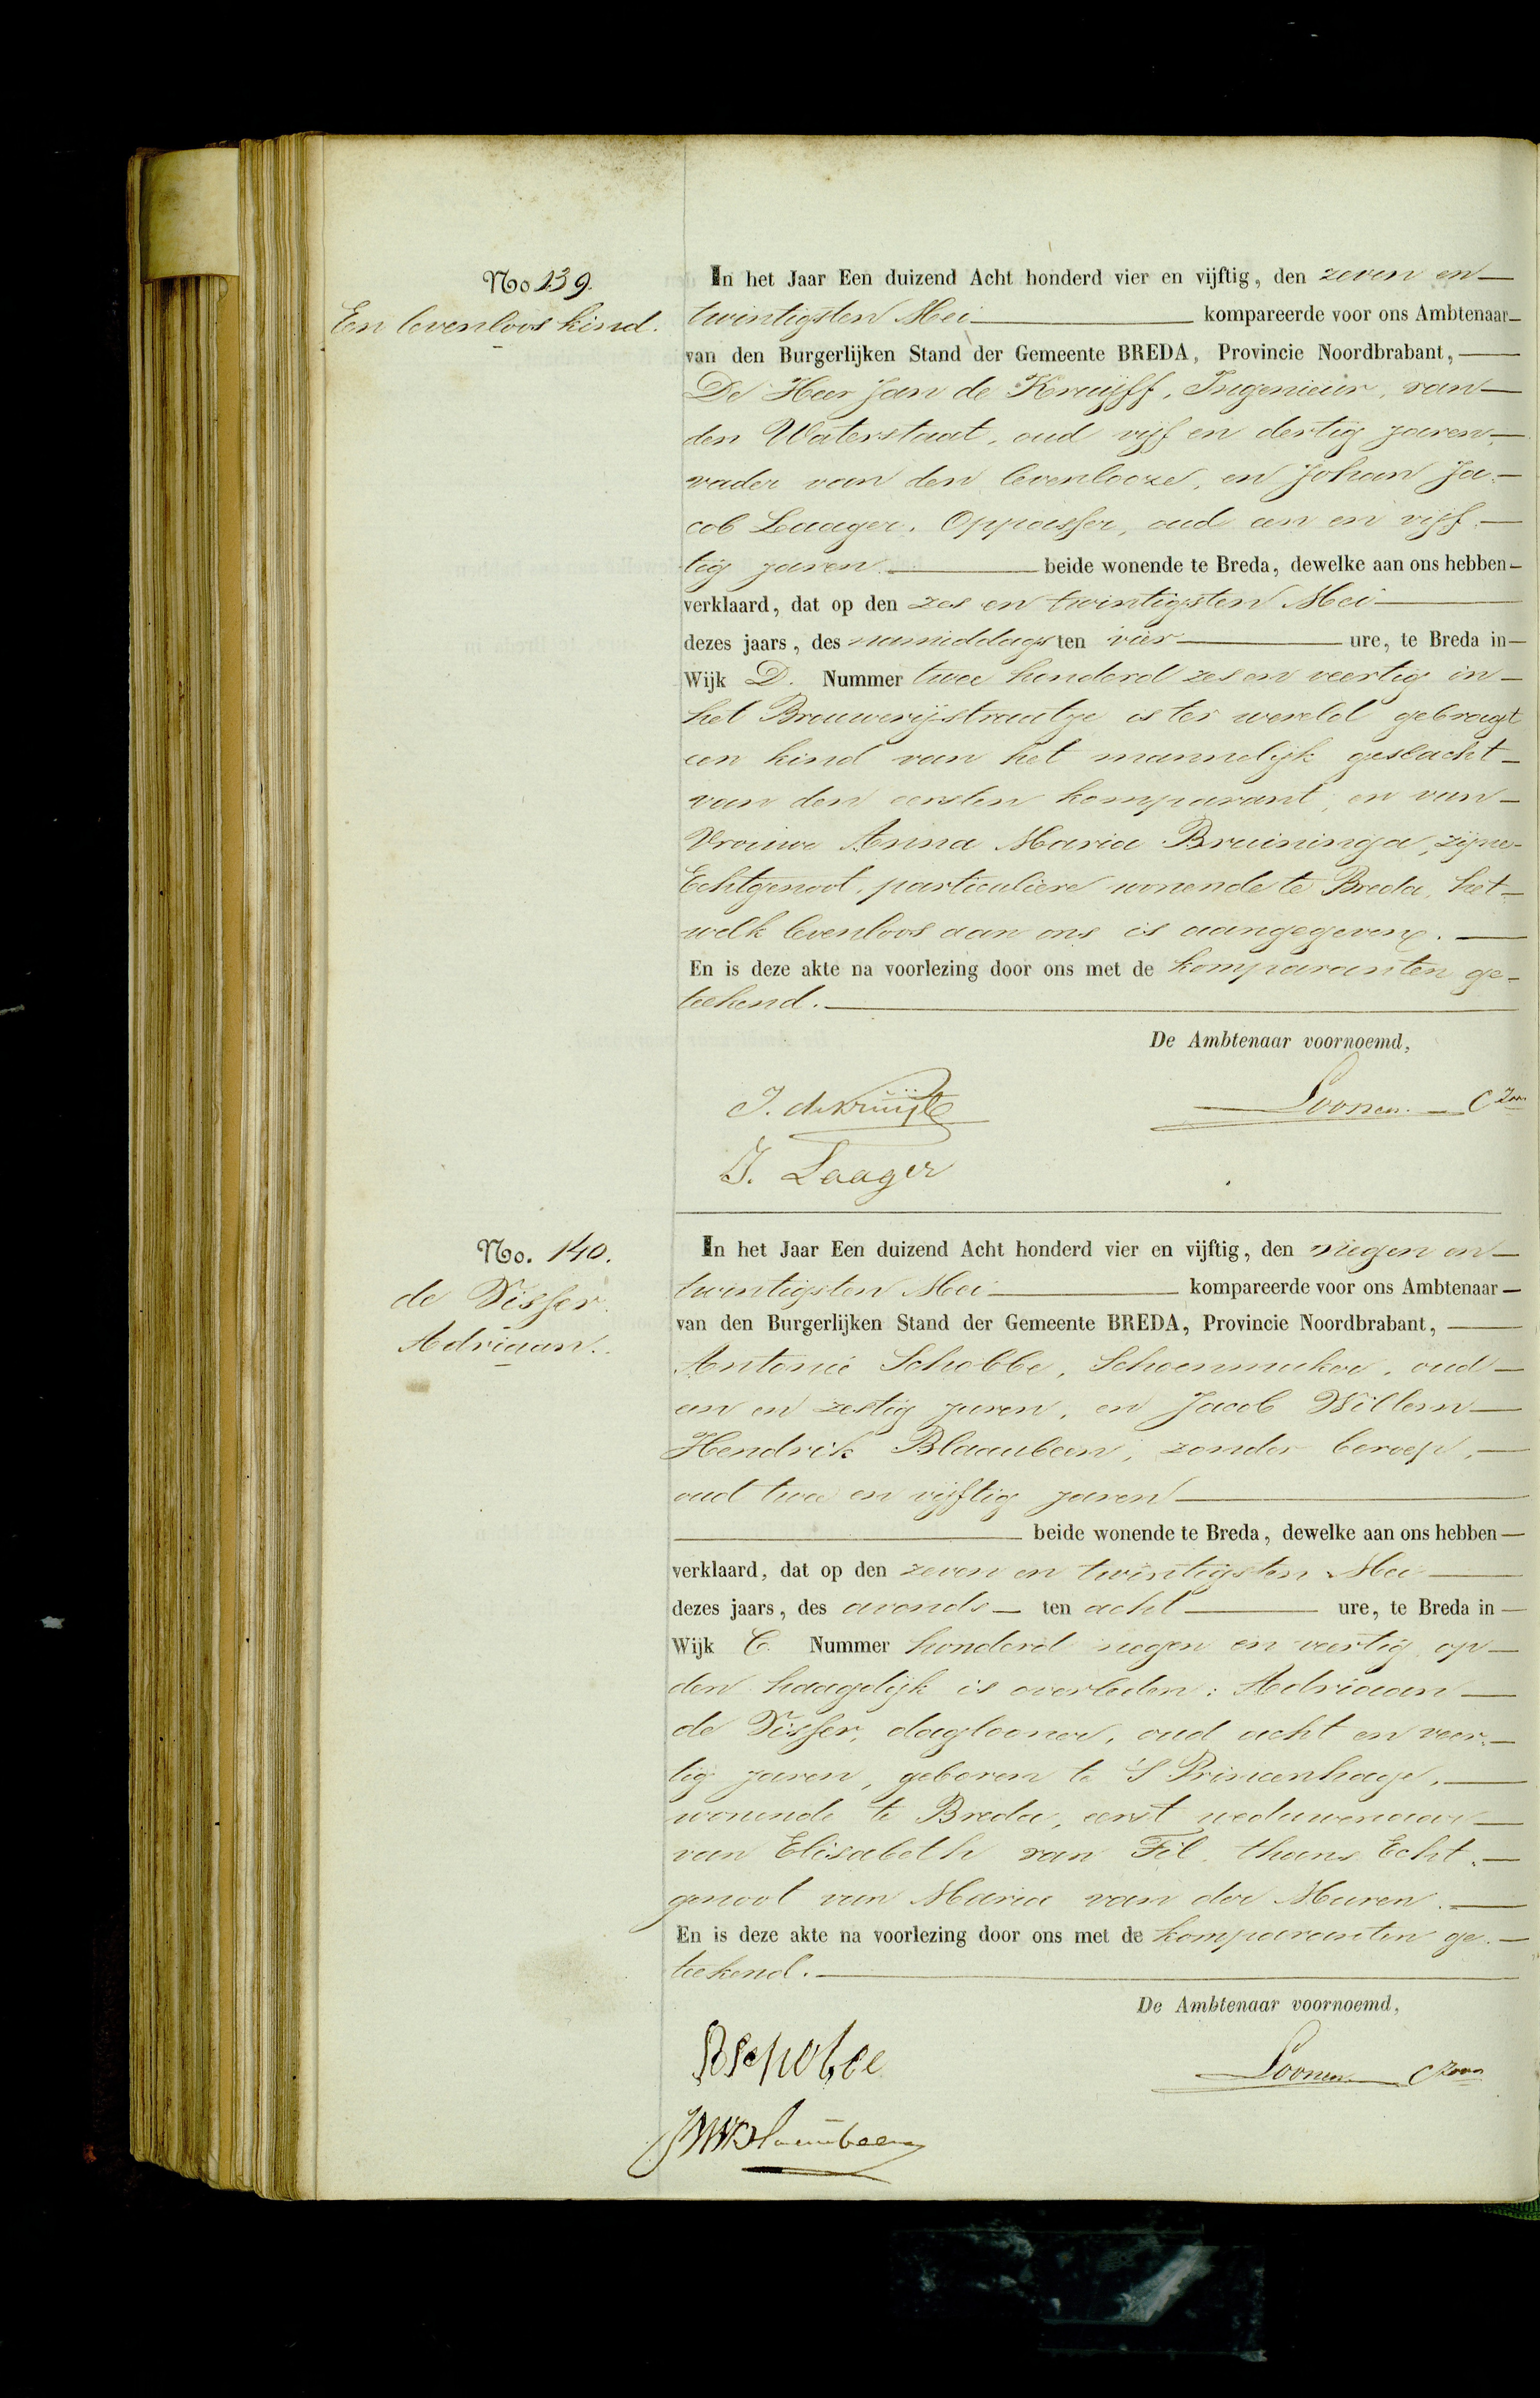 No 139.
Een levenloos kind.
In het Jaar Een duizend Acht honderd vier en vijftig, den zeven en
twintigsten Mei kompareerde voor ons Ambtenaar
van den Burgerlijken Stand der Gemeente BREDA, Provincie Noordbrabant,
De Heer Jan de Kruijff, Ingenieur, van
den Waterstaat, oud vijf en dertig jaren,
vader van den levenlooze, en Johan Ja-
cob Laager, Oppasser, oud een en vijf-
tig jaren beide wonende te Breda, dewelke aan ons hebben
verklaard, dat op den zes en twintigsten Mei
dezes jaars, des namiddags ten vier ure, te Breda in
Wijk D. Nummer twee honderd zes en veertig in
het Brouwerijstraatje is ter wereld gebragt
een kind van het mannelijk geslacht
van den eersten komparant, en van
Vrouwe Anna Maria Bruininga, zijne
Echtgenoot, particuliere wonende te Breda, het-
welk levenloos aan ons is aangegeven.
En is deze akte na voorlezing door ons met de komparanten ge-
teekend.
De Ambtenaar voornoemd,
J. de Kruijff
Loonen Czoon
J. Laager
No. 140.
de Visser
Adriaan.
In het Jaar Een duizend Acht honderd vier en vijftig, den negen en
twintigsten Mei kompareerde voor ons Ambtenaar
van den Burgerlijken Stand der Gemeente BREDA, Provincie Noordbrabant,
Antonie Schobbe, Schoenmaker, oud
een en zestig jaren, en Jacob Willem
Hendrik Blaaubeen, zonder beroep,
oud twee en vijftig jaren
beide wonende te Breda, dewelke aan ons hebben
verklaard, dat op den zeven en twintigsten Mei
dezes jaars, des avonds ten acht ure, te Breda in
Wijk C. Nummer honderd negen en veertig, op
den haagdijk is overleden: Adriaan
de Visser, daglooner, oud acht en veer-
tig jaren, geboren te 'S Princenhage,
wonende te Breda, eerst weduwenaar
van Elisabeth van Fil, thans Echt-
genoot van Maria van der Muren.
En is deze akte na voorlezing door ons met de komparanten ge-
teekend.
De Ambtenaar voornoemd,
Loonen Czoon
JWH Blaaubeen